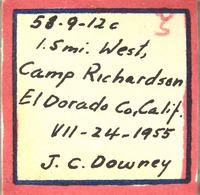 58-9-12c
1.5 mi. West,
Camp Richardson
El Dorado Co., Calif.
VII-24-1955
J. C. Downey